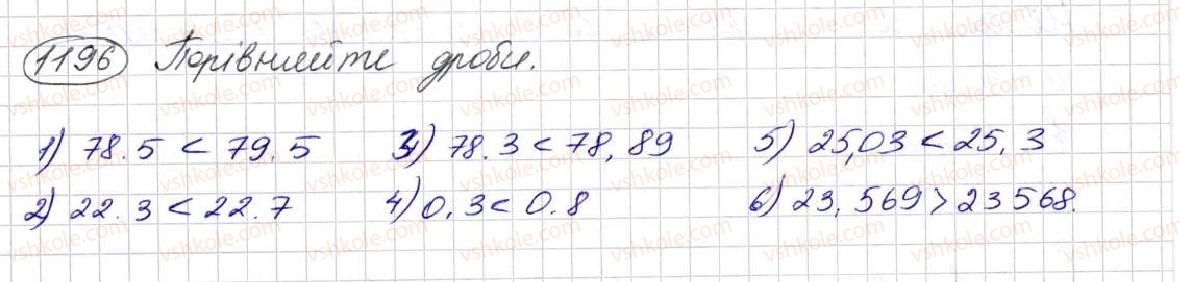 1196 Порівняйте дроби.
1) 78.5 < 79.5 3) 78.3 < 78,89 5) 25,03 < 25,3
2) 22.3 < 22.7 4) 0,3 < 0.8 6) 23,569 > 23568.